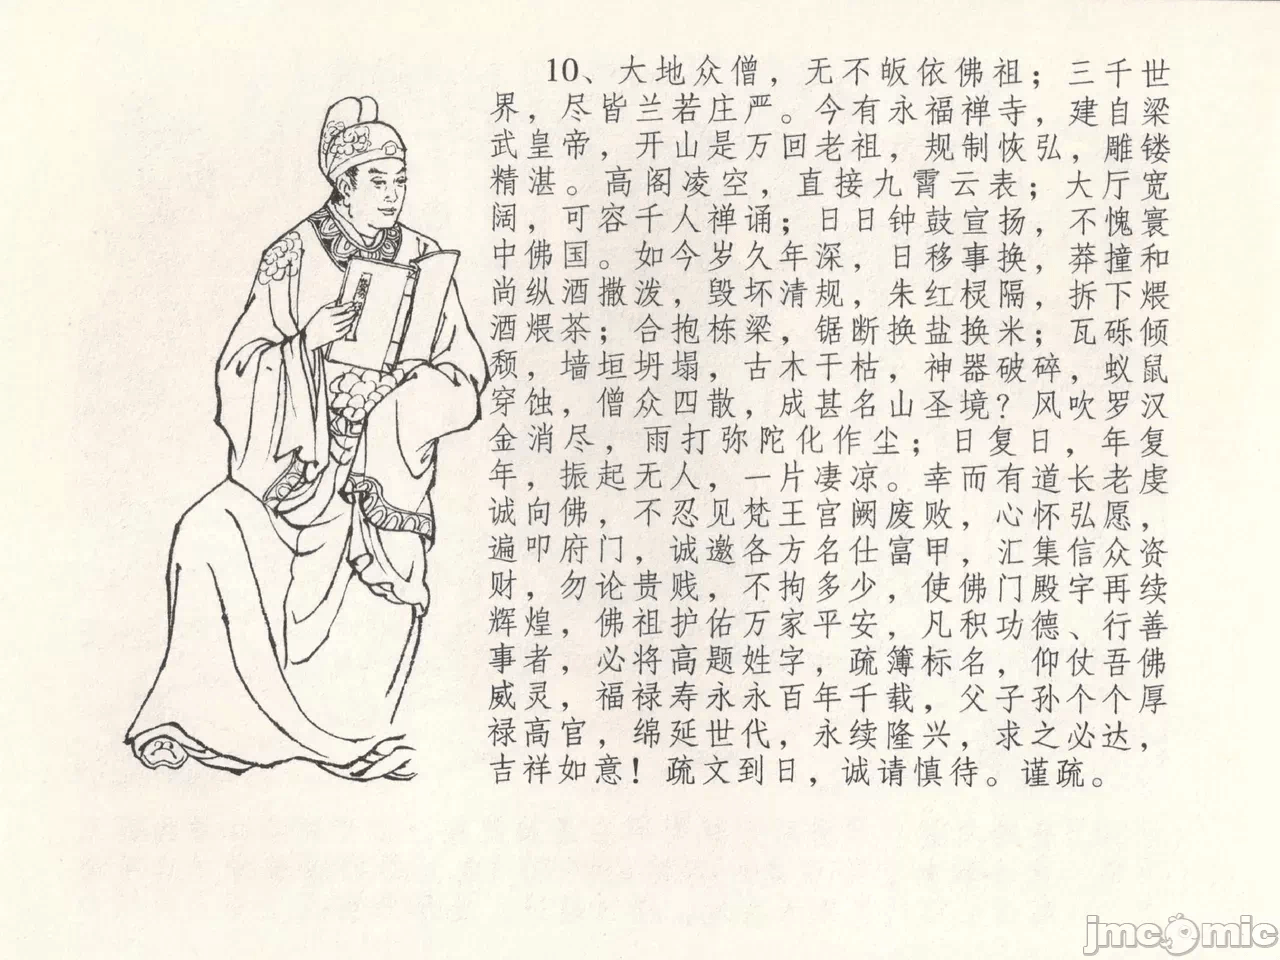 10、大地众僧，无不皈依佛祖；三千世
界，尽皆兰若庄严。今有永福禅寺，建自梁
武皇帝，开山是万回老祖，规制恢弘，雕镂
精湛。高阁凌空，直接九霄云表；大厅宽
阔，可容千人禅诵；日日钟鼓宣扬，不愧寰
中佛国。如今岁久年深，日移事换，莽撞和
尚纵酒撒泼，毁坏清规，朱红棂隔，拆下煨
酒煨茶；合抱栋梁，锯断换盐换米；瓦砾倾
颓，墙垣坍塌，古木干枯，神器破碎，蚁鼠
穿蚀，僧众四散，成甚名山圣境？风吹罗汉
金消尽，雨打弥陀化作尘；日复日，年复
年，振起无人，一片凄凉。幸而有道长老虔
诚向佛，不忍见梵王宫阙废败，心怀弘愿，
遍叩府门，诚邀各方名仕富甲，汇集信众资
财，勿论贵贱，不拘多少，使佛门殿宇再续
辉煌，佛祖护佑万家平安，凡积功德、行善
事者，必将高题姓字，疏簿标名，仰仗吾佛
威灵，福禄寿永永百年千载，父子孙个个厚
禄高官，绵延世代，永续隆兴，求之必达，
吉祥如意！疏文到日，诚请慎待。谨疏。
jmcomic